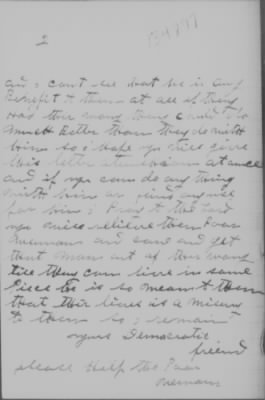 2
and i cant see that he is any
Benefit to them at all if they
Had ther money they could do
Much Better than they do with
him so i hope you will give
this letter attention at once
and if you can do any thing
with him or
for him i Pray to the Lord
you will relieve them Poor
and and get
that man out of ther way
till they can live in some
Peace he is so mean to them
that ther lives is a misery
to them so i remain
yours Democratic
friend
please Help the Poor